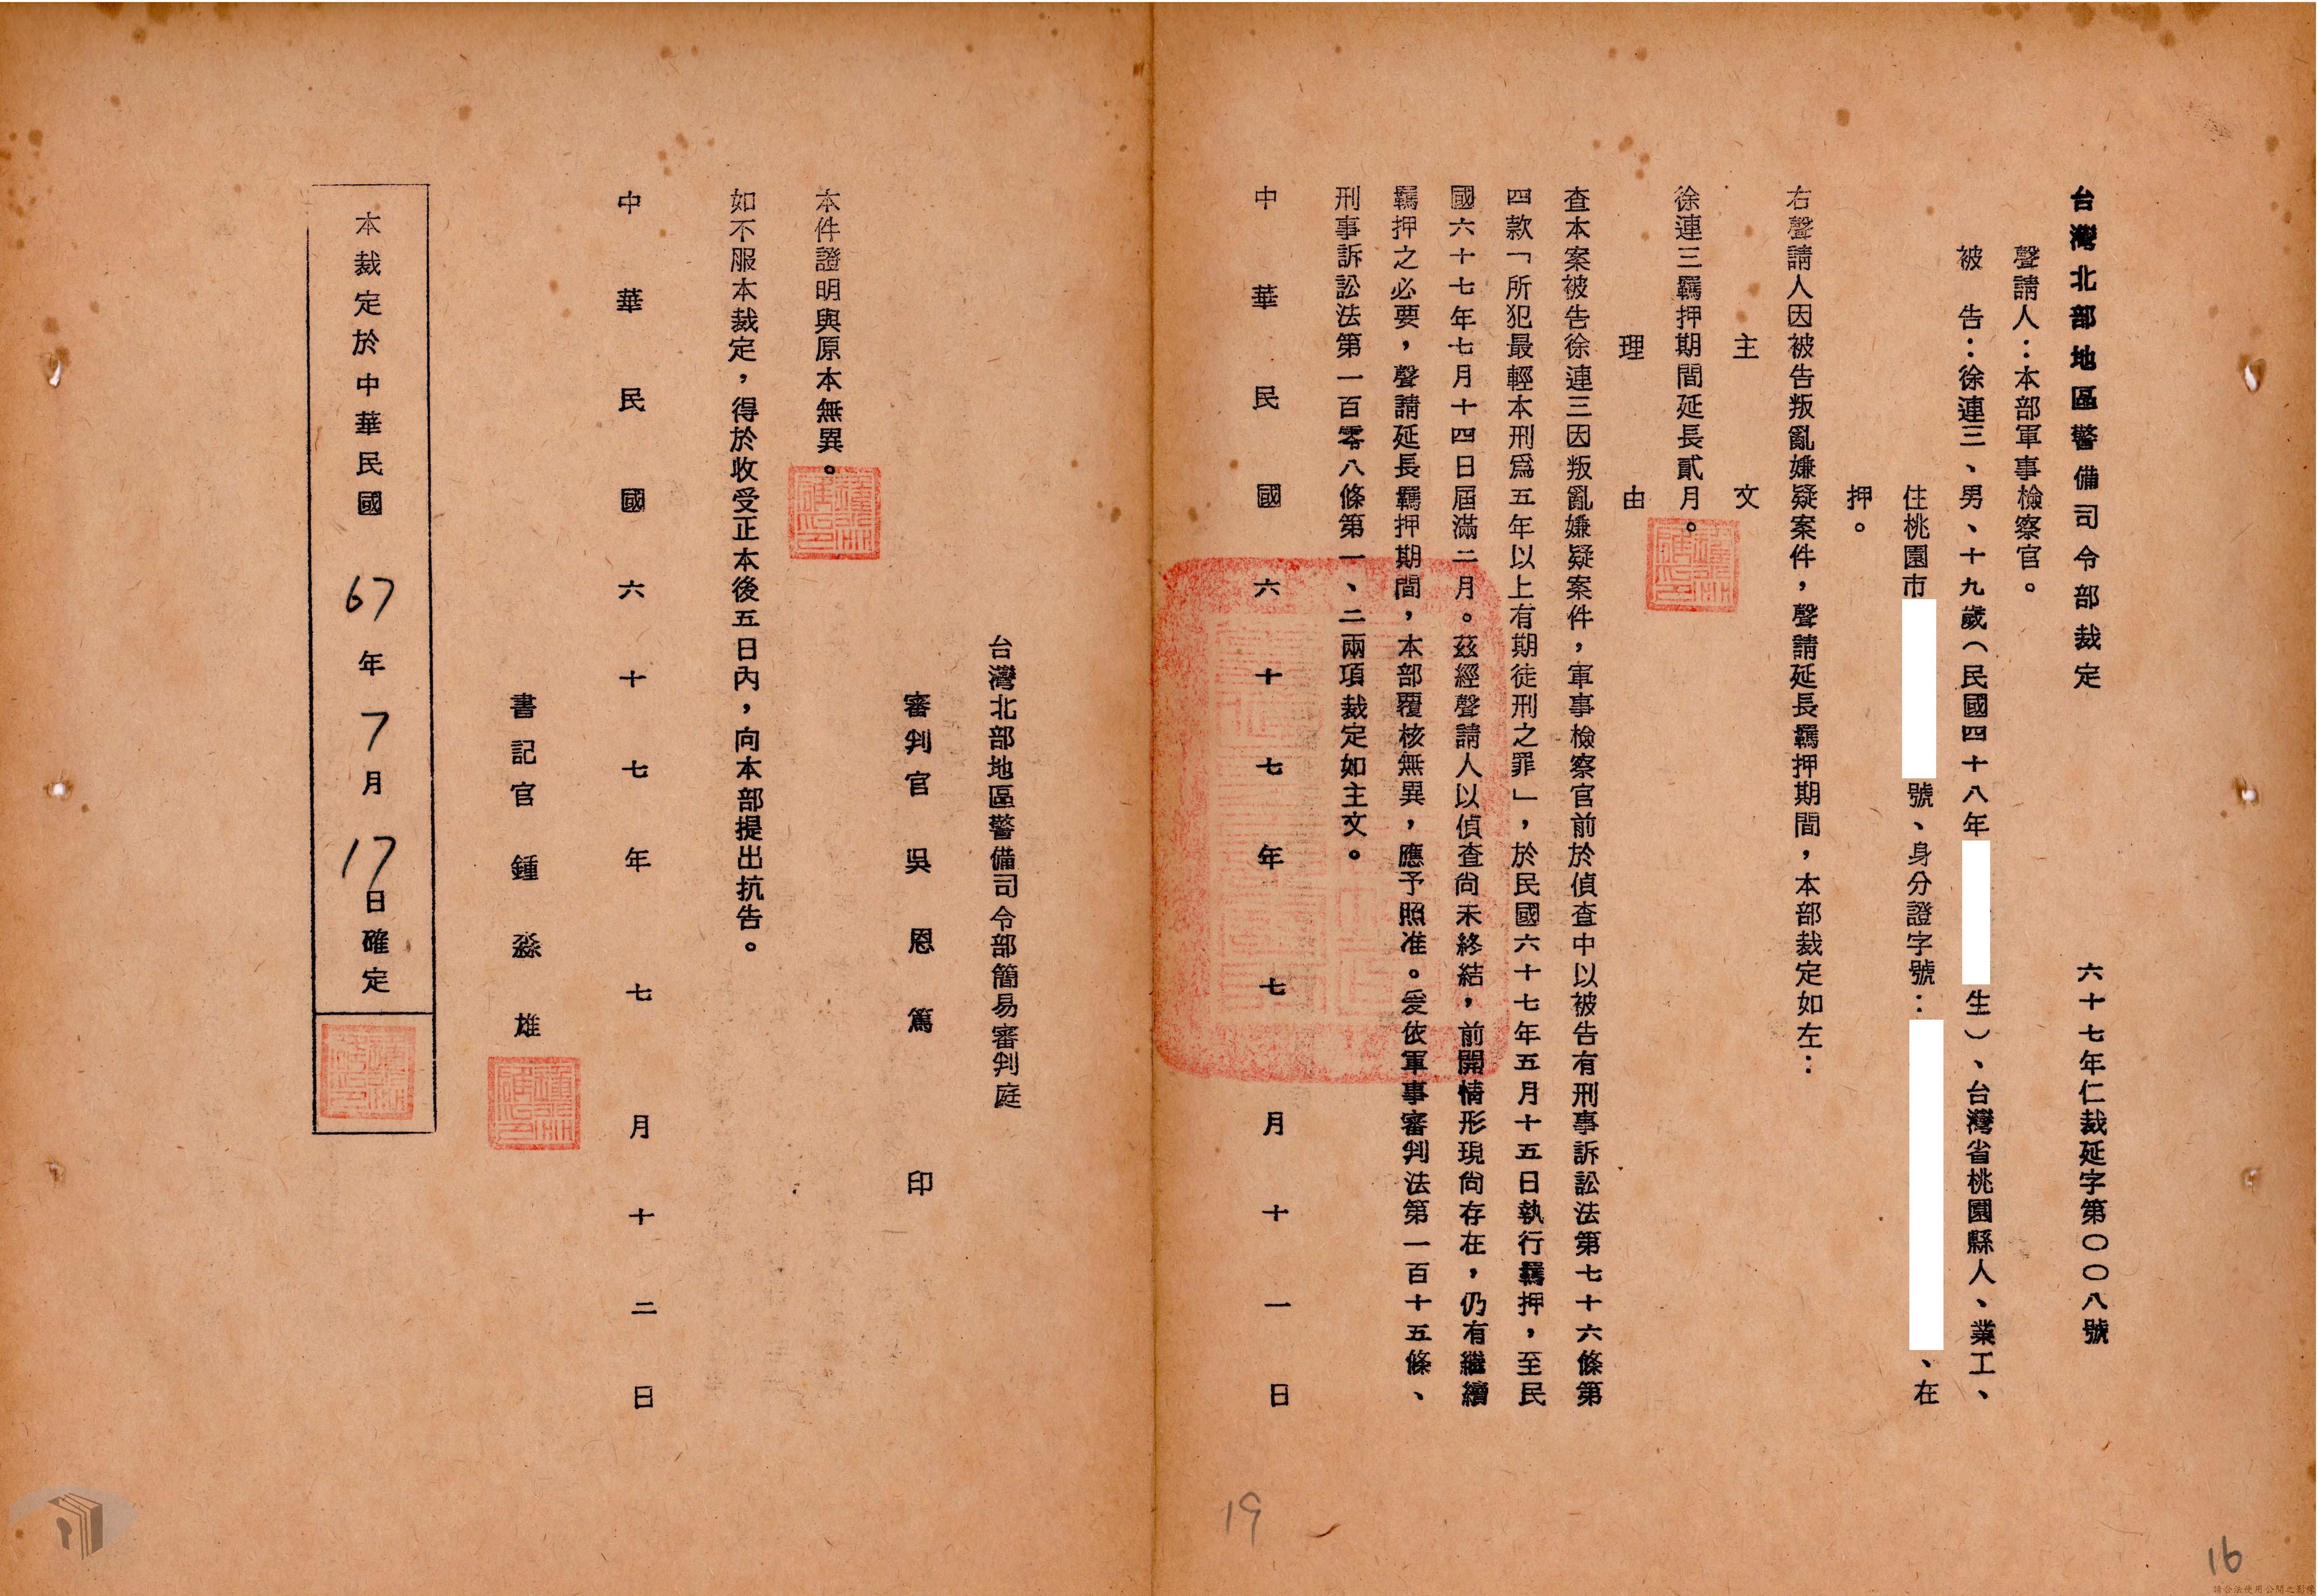 台灣北部地區警備司令部裁定　六十七年仁裁延字第〇〇八號
聲請人：本部軍事檢察官。
被　告：徐連三、男、十九歲（民國四十八年　生）、台灣省桃園縣人、業工、
住桃園市　號、身分證字號：　、在
押。
右聲請人因被告叛亂嫌疑案件，聲請延長羈押期間，本部裁定如左：
主　文
徐連三羈押期間延長貳月。
理　由
查本案被告徐連三因叛亂嫌疑案件，軍事檢察官前於偵查中以被告有刑事訴訟法第七十六條第
四款「所犯最輕本刑爲五年以上有期徒刑之罪」，於民國六十七年五月十五日執行羈押，至民
國六十七年七月十四日屆滿二月。茲經聲請人以偵查尚未終結，前開情形現尚存在，仍有繼續
羈押之必要，聲請延長羈押期間，本部覆核無異，應予照准。爰依軍事審判法第一百十五條、
刑事訴訟法第一百零八條第一、二兩項裁定如主文。
中華民國六十七年七月十一日
19
16
台灣北部地區警備司令部簡易審判庭
審判官　吳恩篤　印
本件證明與原本無異。
如不服本裁定，得於收受正本後五日內，向本部提出抗告。
中華民國六十七年七月十二日
書記官　鍾淼雄
本裁定於中華民國67年7月17日確定
請合法使用公開之影像